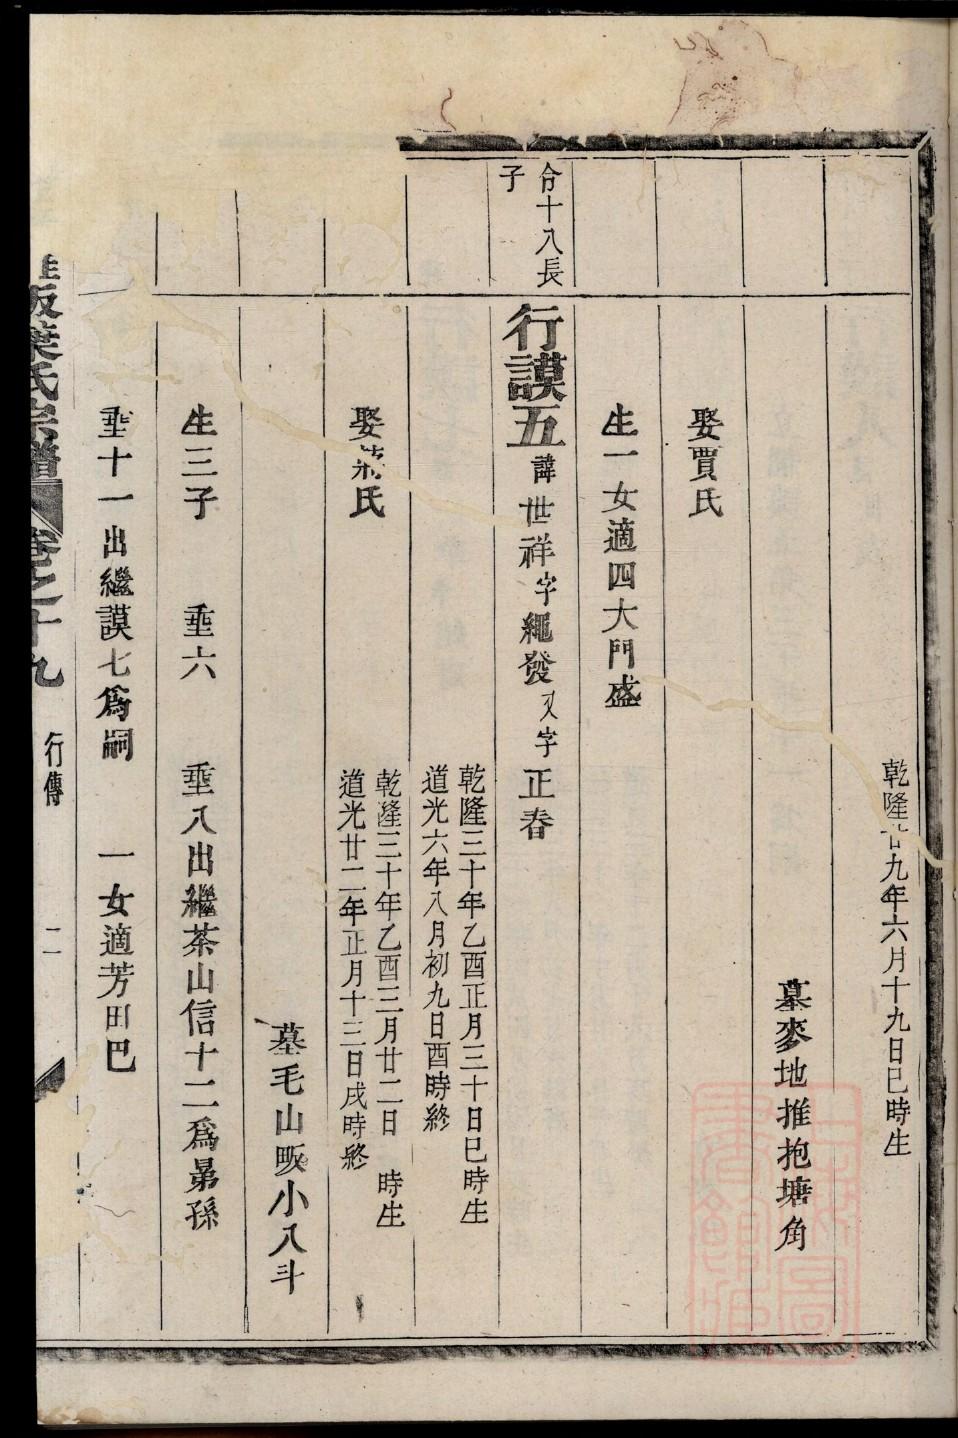 乾隆廿九年六月十九日巳時生
墓麥地推抱塘角
娶賈氏
生一女適四大門盛
合十八長子
行謨五諱世祥字繩發又字正春
乾隆三十年乙酉正月三十日巳時生
道光六年八月初九日酉時終
娶蔣氏
乾隆三十年乙酉三月廿二日 時生
道光廿二年正月十三日戌時終
墓毛山畈小八斗
生三子 垂六 垂八出繼茶山信十二爲曻孫
垂十一出繼謨七爲嗣 一女適芳田巴
畈葉氏宗譜 卷之十九 行傳 二